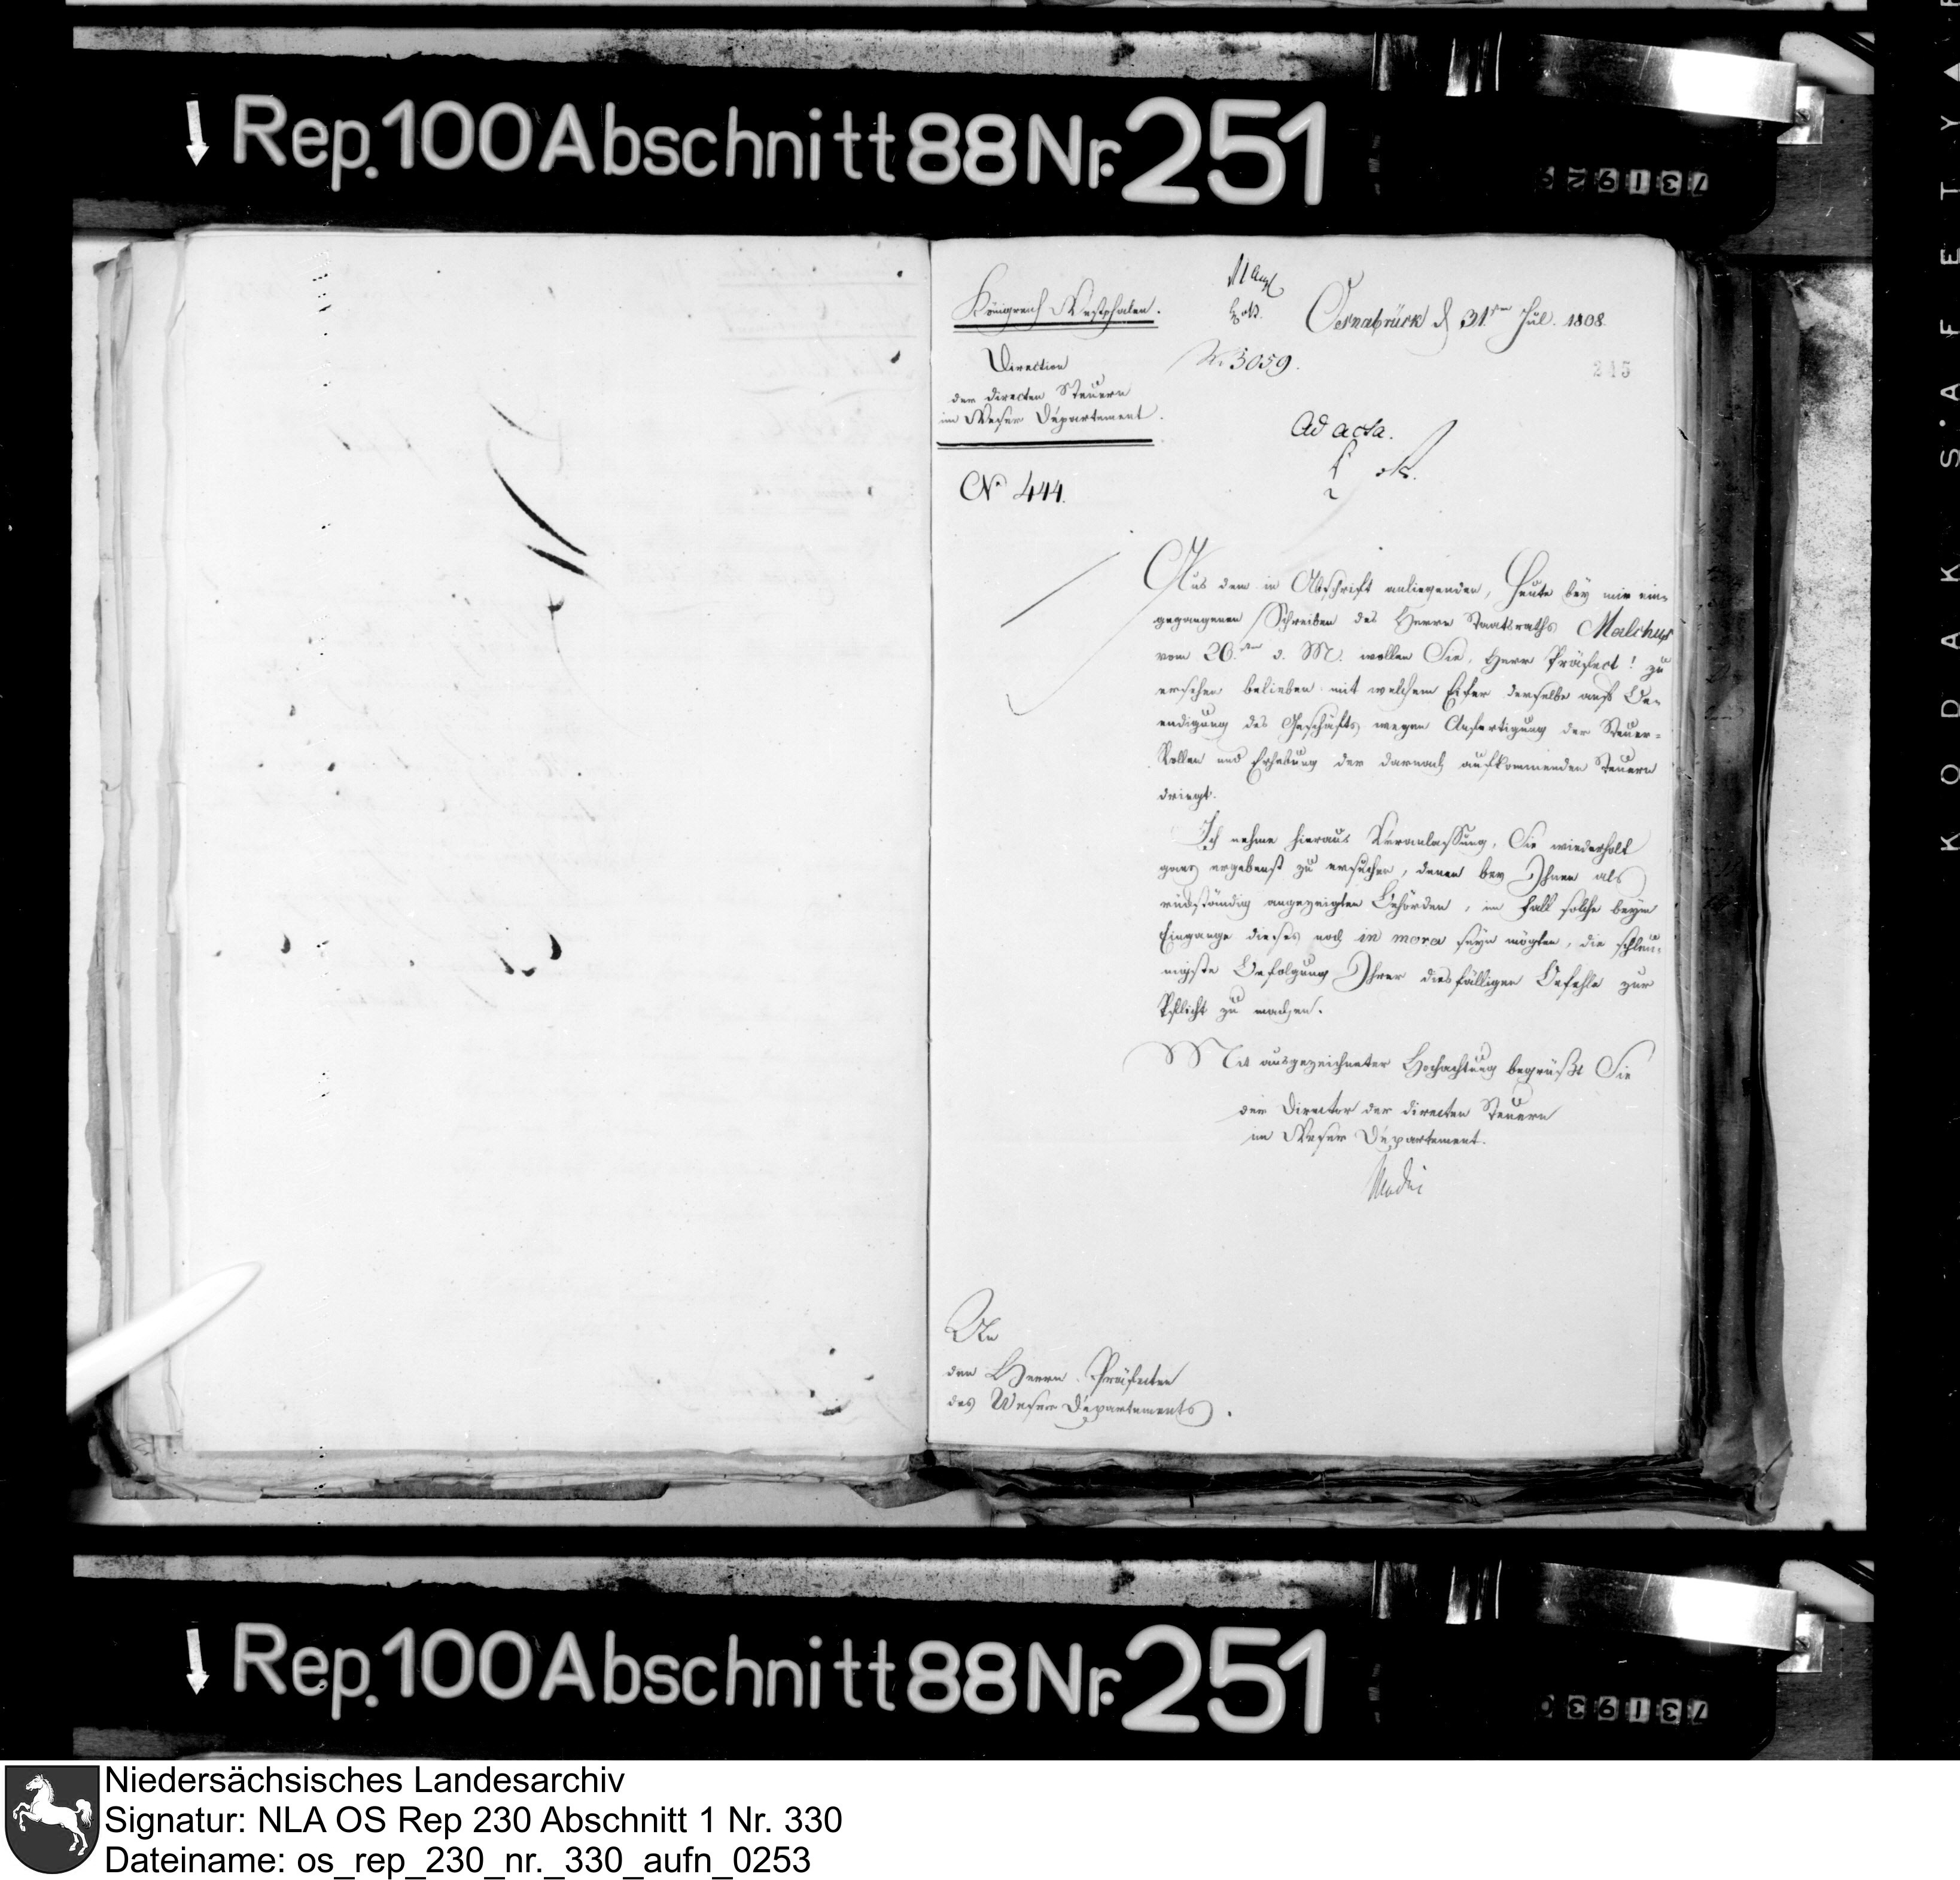 Rep. 100 Abschnitt 88 Nr. 251
Königreich Westphalen.
Osnabrück d 31ten Jul. 1808.
Direction
der directen Steuern
im Weser Departement.
N. 3059.
215
Ad acta.
No 444.
Aus dem in Abschrift anliegenden, Heute bey mir ein-
gegangenen Schreiben des Herrn Staatsraths Malchus
vom 26ten d. M. wollen Sie, Herr Präfect! zu
ersehen belieben mit welchem Eifer derselbe auf Be-
endigung des Geschäfts wegen Anfertigung der Steuer-
Rollen und Erhebung der darnach aufkommenden Steuern
dringt.
Ich nehme hieraus Veranlassung, Sie wiederholt
ganz ergebenst zu ersuchen, denen bey Ihnen als
rückständig angezeigten Behörden, im Fall solche beym
Eingange dieses noch in mora seyn mögten, die schleu-
nigste Befolgung Ihrer diesfälligen Befehle zur
Pflicht zu machen.
Mit ausgezeichneter Hochachtung begrüßt Sie
der Director der directen Steuern
im Weser Departement.
An
den Herrn Präfecten
des Weser Departements.
Rep. 100 Abschnitt 88 Nr. 251
KODAK SAFETY
Niedersächsisches Landesarchiv
Signatur: NLA OS Rep 230 Abschnitt 1 Nr. 330
Dateiname: os_rep_230_nr._330_aufn_0253